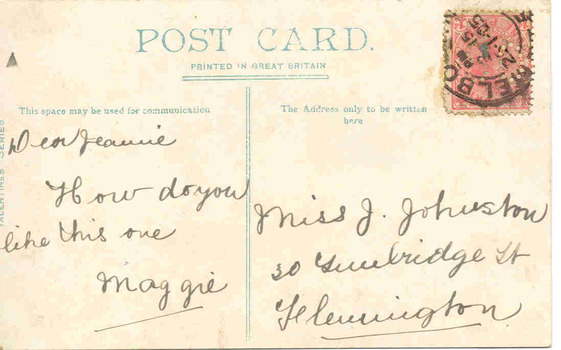 POST CARD.
PRINTED IN GREAT BRITAIN
This space may be used for communication
The Address only to be written
here
VALENTINES SERIES
MELBO
Dear Jeannie
How do you
like this one
Maggie
Miss J. Johnston
30 Tunbridge St
Flemington